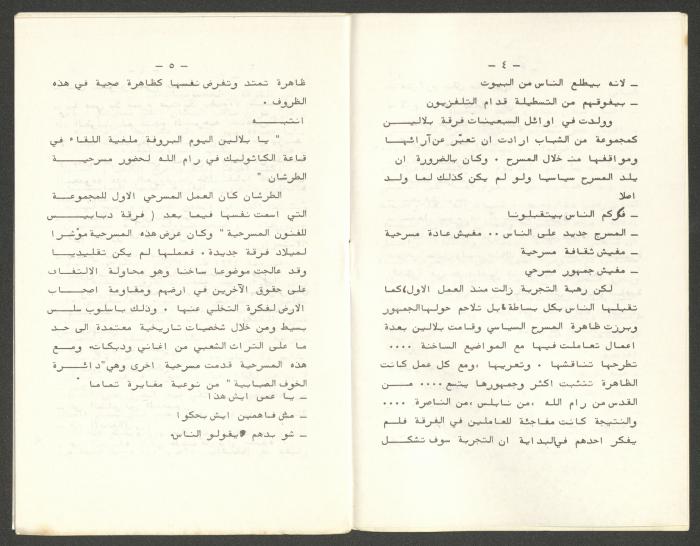 - ٤ -
ـ لانه بيطلع الناس من البيوت
ـ بيفوقهم من التسطيلة قدام التلفزيون
وولدت في اوائل السبعينات فرقة بلالين
كمجموعة من الشباب ارادت ان تعبّر عن آرائها
ومواقفها من خلال المسرح . وكان بالضرورة ان
يلد المسرح سياسيا ولو لم يكن كذلك لما ولد
اصلا
ـ فكركم الناس بيتقبلونا
ـ المسرح جديد على الناس .. مفيش عادة مسرحية
ـ مفيش ثقافة مسرحية
ـ مفيش جمهور مسرحي
لكن رهبة التجربة زالت منذ العمل الاول، كما
تقبلها الناس بكل بساطة، بل تلاحم حولها الجمهور
وبرزت ظاهرة المسرح السياسي وقامت بلالين بعدة
اعمال تعاملت فيها مع المواضيع الساخنة ....
تطرحها تناقشها . وتعريها ،ومع كل عمل كانت
الظاهرة تتثبت اكثر وجمهورها يتسع .... من
القدس من رام الله ،من نابلس ،من الناصرة ....
والنتيجة كانت مفاجئة للعاملين في الفرقة فلم
يفكر احدهم في البداية ان التجربة سوف تشكل
- ٥ -
ظاهرة تمتد وتفرض نفسها كظاهرة صحية في هذه
الظروف .
انتبه
" يا بلالين اليوم البروفة ملغية اللقاء في
قاعة الكاثوليك في رام الله لحضور مسرحية
الطرشان "
الطرشان كان العمل المسرحي الاول للمجموعة
التي اسمت نفسها فيما بعد ( فرقة دبابيس
للفنون المسرحية " وكان عرض هذه المسرحية مؤشرا
لميلاد فرقة جديدة . فعملها لم يكن تقليديا
وقد عالجت موضوعا ساخنا وهو محاولة الالتفاف
على حقوق الآخرين في ارضهم ومقاومة اصحاب
الارض لفكرة التخلي عنها . وذلك باسلوب سلس
بسيط ومن خلال شخصيات تاريخية معتمدة الى حد
ما على التراث الشعبي من اغاني ودبكات. ومع
هذه المسرحية قدمت مسرحية اخرى وهي "دائرة
الخوف الضبابية " من نوعية مغايرة تماما .
ـ يا عمي ايش هذا
ـ مش فاهمين ايش بحكوا
ـ شو بدهم يقولو الناس.